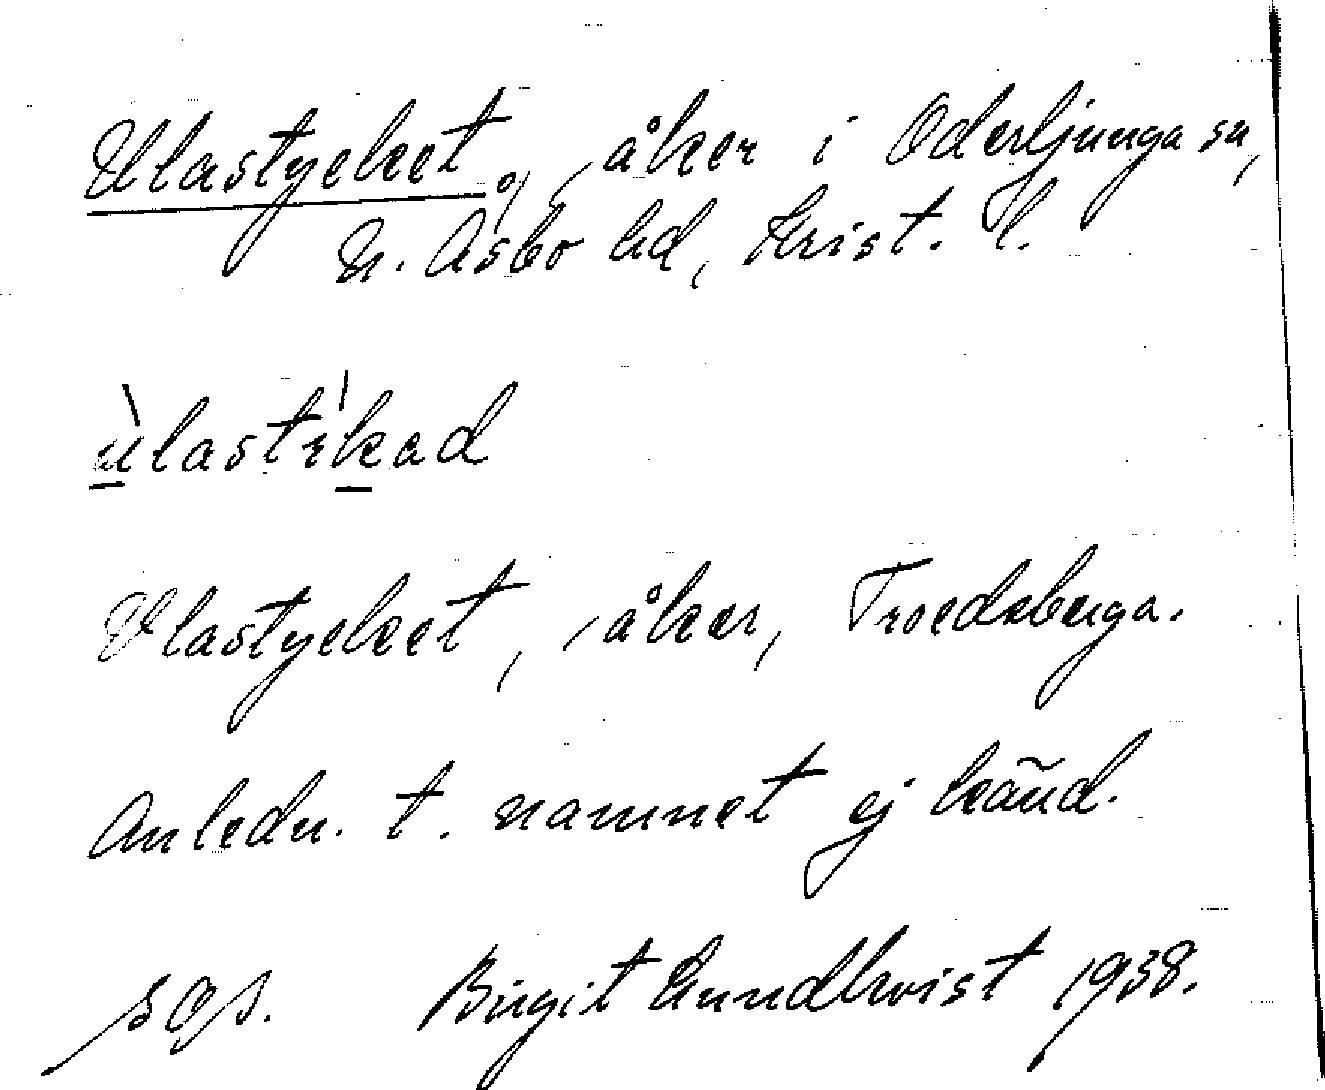 Ulastycket, åker i Oderljunga sn,
N. Åsbo hd, Krist. l.
ùlastìkad
Ulastycket, åker, Troedsberga.
Anledn. t. namnet ej känd.
Birgit Lundkvist 1938.